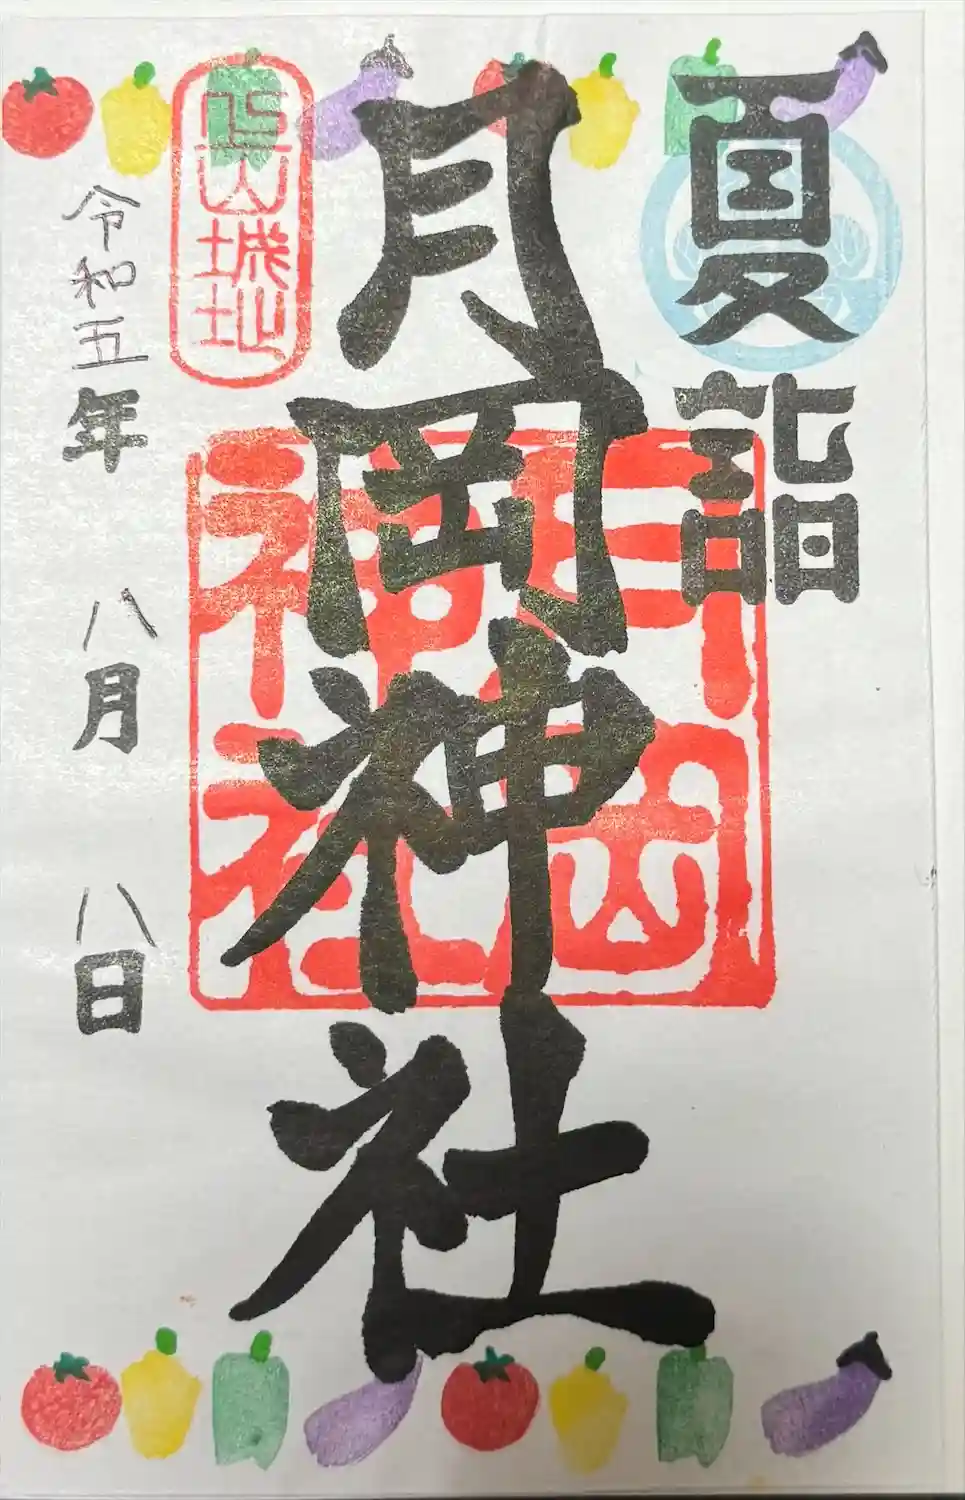 夏詣
月岡神社
月岡
神社
山城址
令和五年 八月 八日